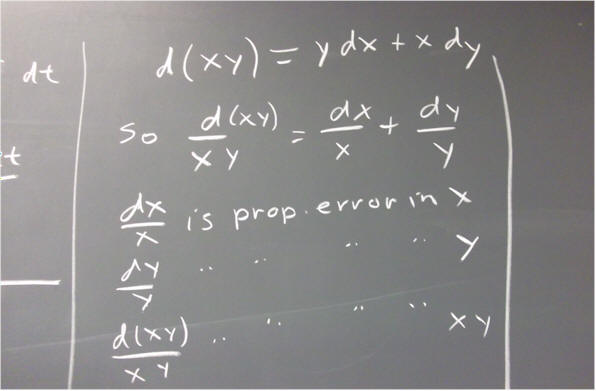 dt
d(xy) = y dx + x dy
So d(xy)/xy = dx/x + dy/y
t
dx/x is prop. error in x
dy/y " " " " y
d(xy)/xy " " " " xy